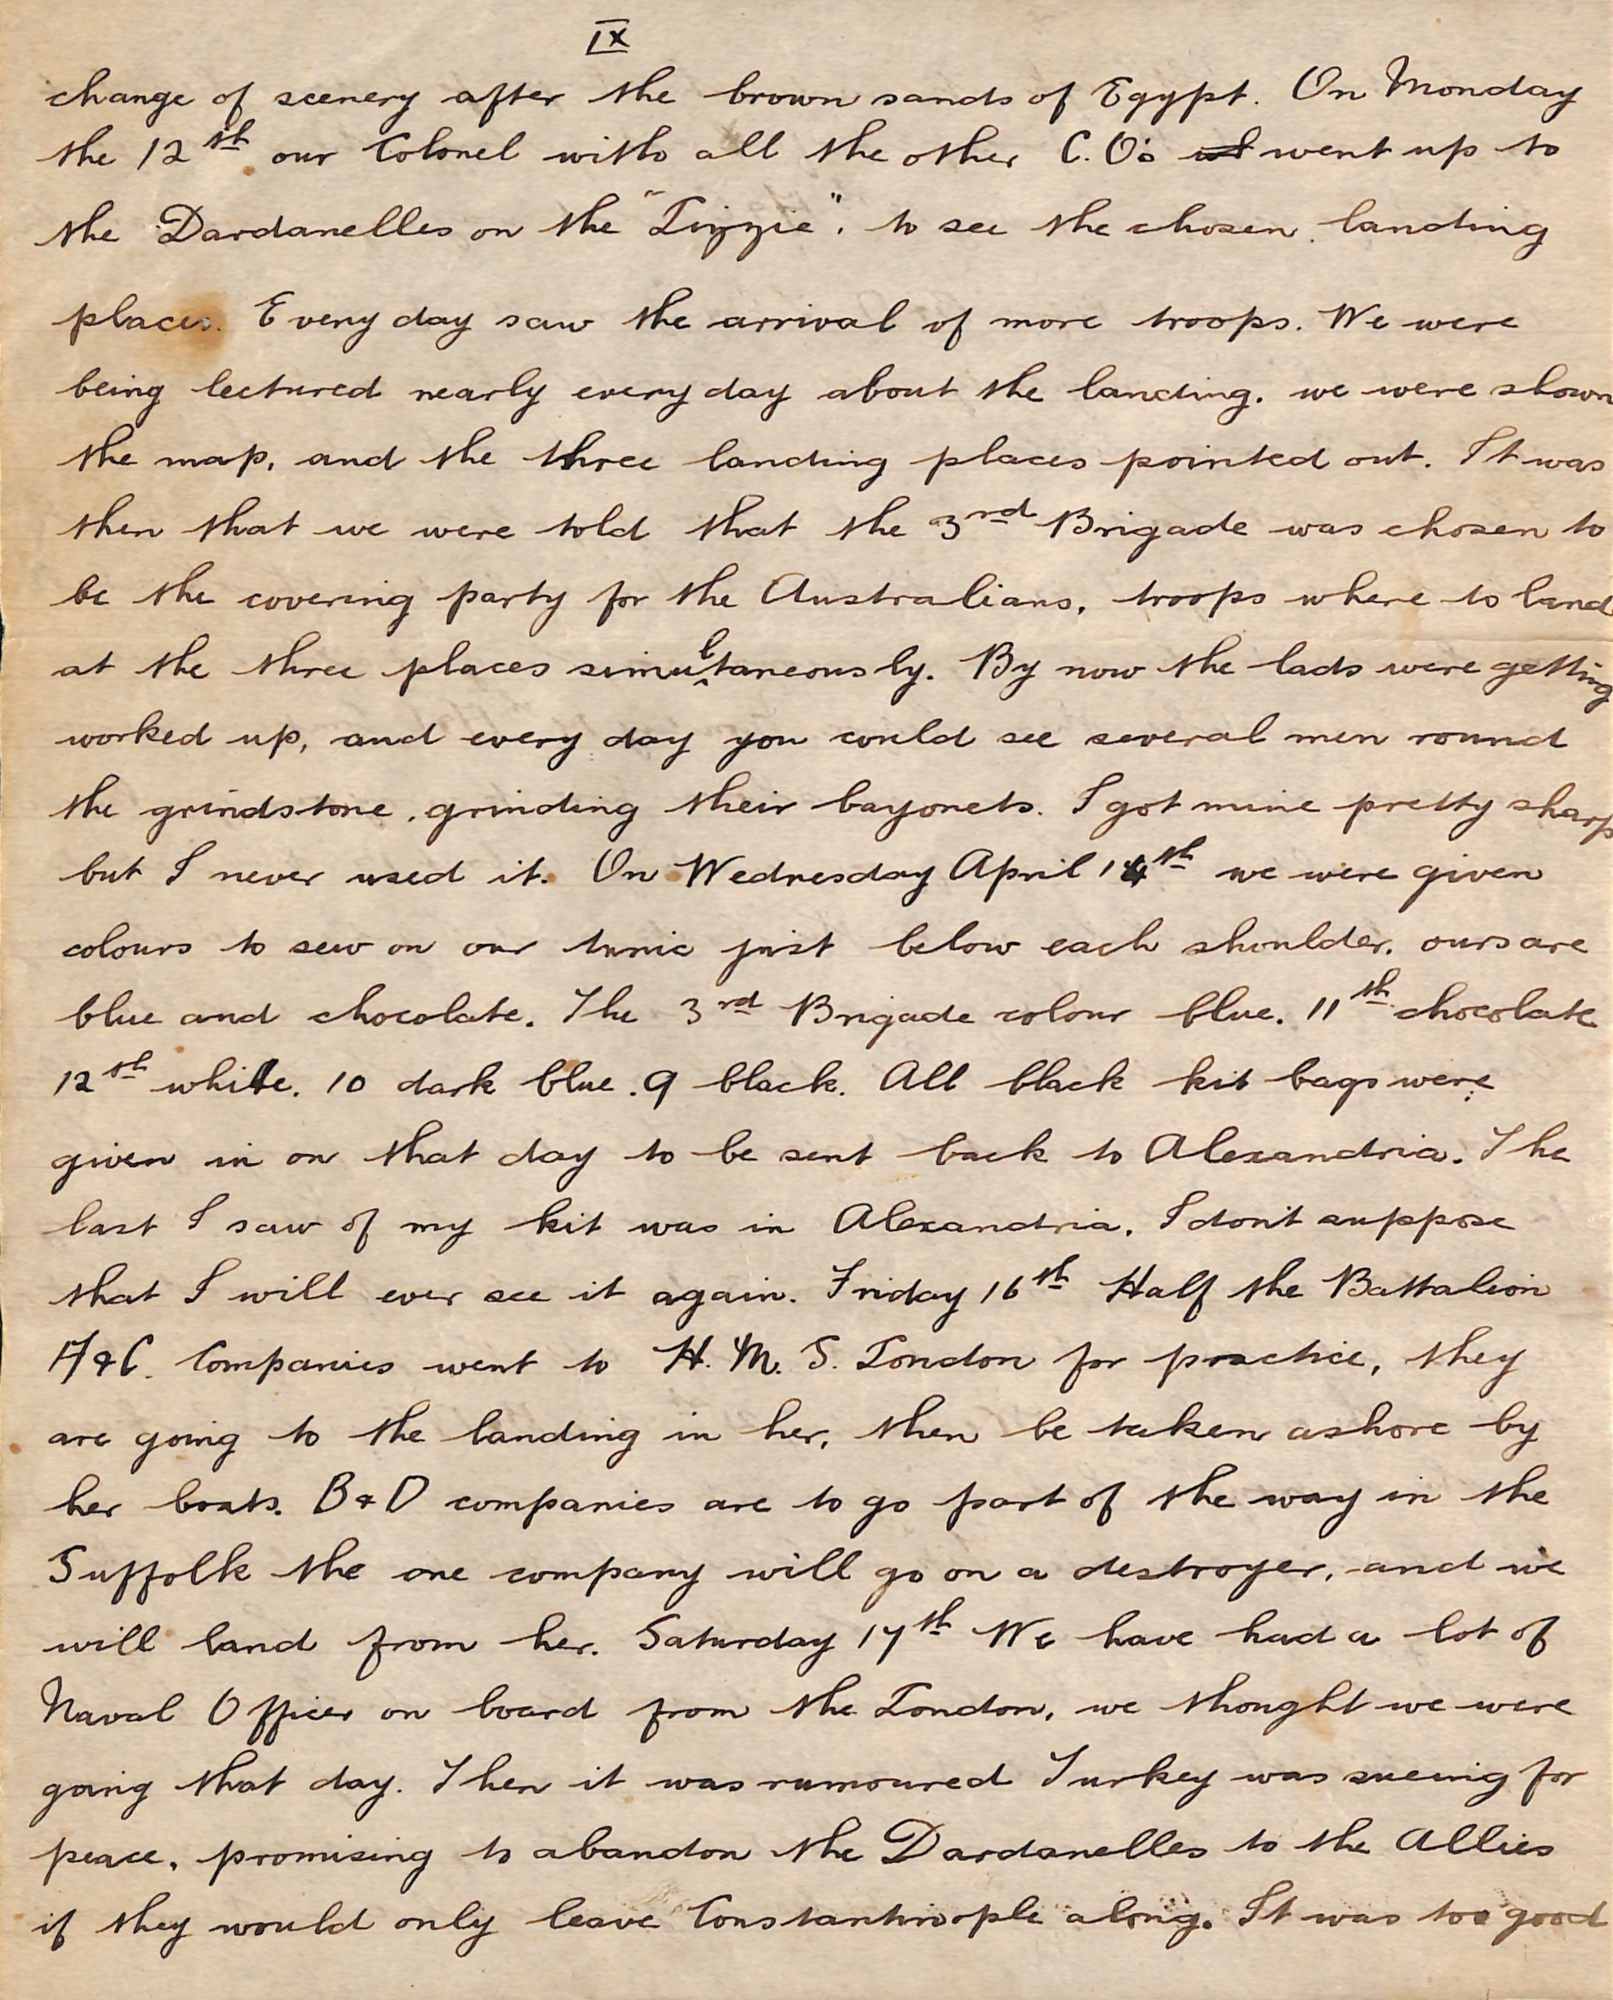 IX
change of scenery after the brown sands of Egypt. On Monday
the 12th our Colonel with all the other C.O's went up to
the Dardanelles on the "Lizzie", to see the chosen landing
places. Every day saw the arrival of more troops. We were
being lectured nearly every day about the landing. we were shown
the map, and the three landing places pointed out. It was
then that we were told that the 3rd Brigade was chosen to
be the covering party for the Australians, troops where to land
at the three places simultaneously. By now the lads were getting
worked up, and every day you could see several men round
the grindstone, grinding their bayonets. I got mine pretty sharp
but I never used it. On Wednesday April 14th we were given
colours to sew on our tunic just below each shoulder. ours are
blue and chocolate. The 3rd Brigade colour blue. 11th chocolate
12th white. 10 dark blue. 9 black. All black kit bags were
given in on that day to be sent back to Alexandria. The
last I saw of my kit was in Alexandria. I don't suppose
that I will ever see it again. Friday 16th Half the Battalion
A & C. Companies went to H. M. S. London for practice, they
are going to the landing in her, then be taken ashore by
her boats. B & D companies are to go part of the way in the
Suffolk the one company will go on a destroyer, and we
will land from her. Saturday 17th We have had a lot of
Naval Officer on board from the London, we thought we were
going that day. Then it was rumoured Turkey was sueing for
peace, promising to abandon the Dardanelles to the Allies
if they would only leave Constantinople along. It was too good